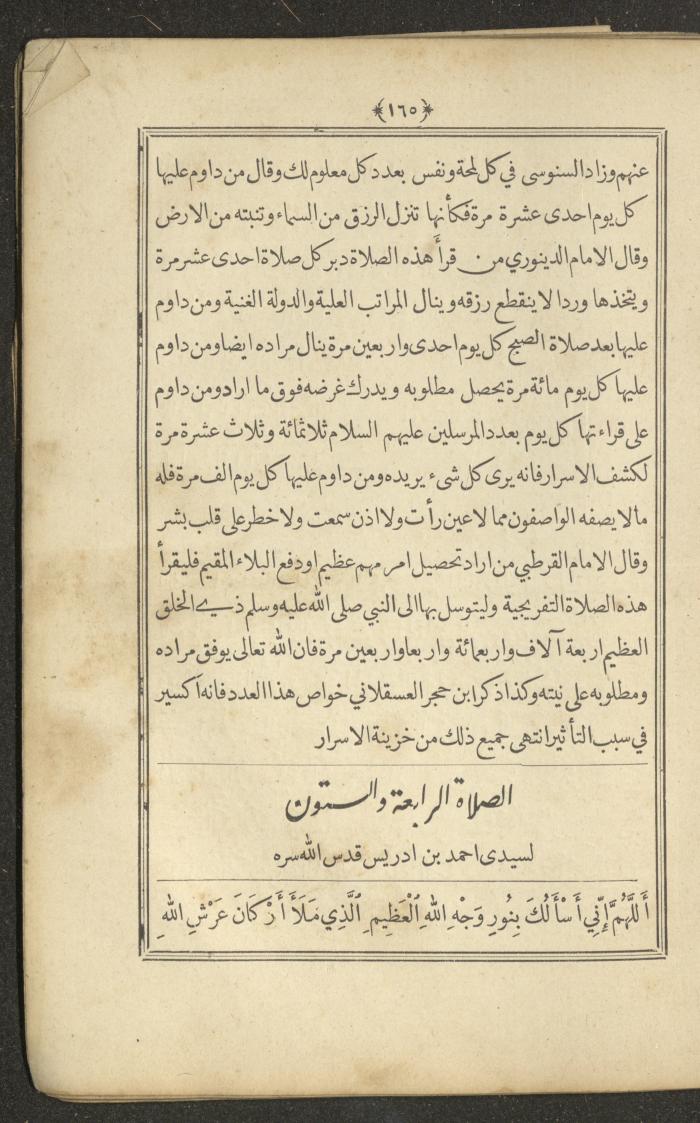 ﴿١٦٥﴾
عنهم وزاد السنوسى في كل لمحة ونفس بعدد كل معلوم لك وقال من داوم عليها
كل يوم احدى عشرة مرة فكأنها تنزل الرزق من السماء وتنبته من الارض
وقال الامام الدينوري من قرأ هذه الصلاة دبر كل صلاة احدى عشر مرة
ويتخذها وردا لا ينقطع رزقه وينال المراتب العلية والدولة الغنية ومن داوم
عليها بعد صلاة الصبح كل يوم احدى واربعين مرة ينال مراده ايضا ومن داوم
عليها كل يوم مائة مرة يحصل مطلوبه ويدرك غرضه فوق ما اراد ومن داوم
على قراءتها كل يوم بعدد المرسلين عليهم السلام ثلاثمائة وثلاث عشرة مرة
لكشف الاسرار فانه يرى كل شىء يريده ومن داوم عليها كل يوم الف مرة فله
مالا يصفه الواصفون مما لا عين رأت ولا اذن سمعت ولا خطر على قلب بشر
وقال الامام القرطبي من اراد تحصيل امر مهم عظيم او دفع البلاء المقيم فليقرأ
هذه الصلاة التفريجية وليتوسل بها الى النبي صلى الله عليه وسلم ذي الخلق
العظيم اربعة آلاف واربعمائة واربعا واربعين مرة فان الله تعالى يوفق مراده
ومطلوبه على نيته وكذا ذكر ابن حجر العسقلاني خواص هذا العدد فانه آكسير
في سبب التأثير انتهى جميع ذلك من خزينة الاسرار
الصلاة الرابعة والستون
لسيدى احمد بن ادريس قدس الله سره
أَللَّهُمَّ إِنِّي أَسْأَلُكَ بِنُورِ وَجْهِ اللهِ ٱلْعَظِيمِ ٱلَّذِي مَلَأَ أَرْكَانَ عَرْشِ اللهِ